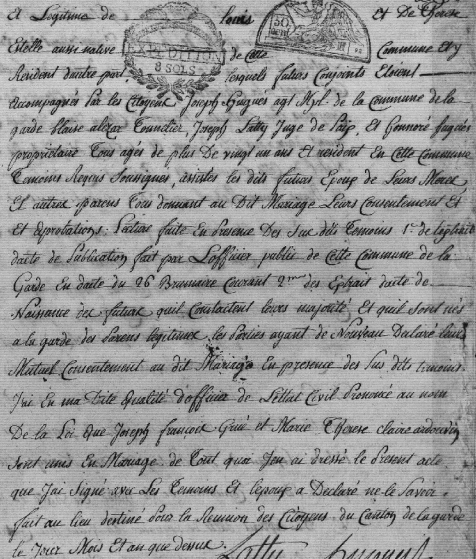 et Legitime de louis et De therese
Etelle aussi native de cette Commune et y
Résident dautre part lesquels futurs Conjoints Etoient
EXPÉDITION
8 SOLS
acompagnés Par les Citoyens Joseph hugues agt Mpl. de la Commune de la
garde blaise alexis Joseph Lattry Juge de Paix, Et honnoré
propriétaire Tous agés de plus De vingt un ans et résident En Cette Commune
Temoins Requis Soussignés, assistés les dits futurs Epoux de Leurs Meres
Et autres parens Tous donnant au Dit Mariage Leurs Consentement et
Et aprobations: Lecture faite En presence Des Sus dits Temoins 1º de
dacte de Publication fait par Lofficier public de Cette Commune de la
Garde En datte du 26 Brumaire Courant 2º des Extrait dacte de
Naissance des futurs quil Constactent leurs majorité Et quil sont nés
a la garde des Parens legitimes les parties ayant de Nouveau Declaré leur
Mutuel Consentement au dit Mariage En presence des sus dits temoins
Jai En ma Dite Qualité dofficier de Lettat Civil Prononcé au nom
De la Loi Que Joseph francois et Marie Therese claire
sont unis En Mariage de Tout quoi Jen ai dressé le Present acte
que Jai Signé avec Les Temoins Et lepoux a Declaré ne le Savoir.
fait au lieu destiné Pour la Reunion des Citoyens du Canton de la garde
le Jour Mois Et an que dessus.